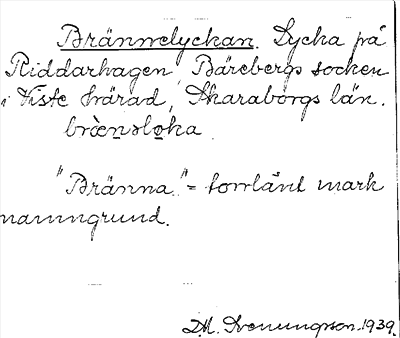 Brännelyckan. Lycka på
Riddarhagen Bärebergs socken
i Viste härad, Skaraborgs län.
"Bränna" = torrlänt mark
namngrund.
M. Svenungson. 1939.